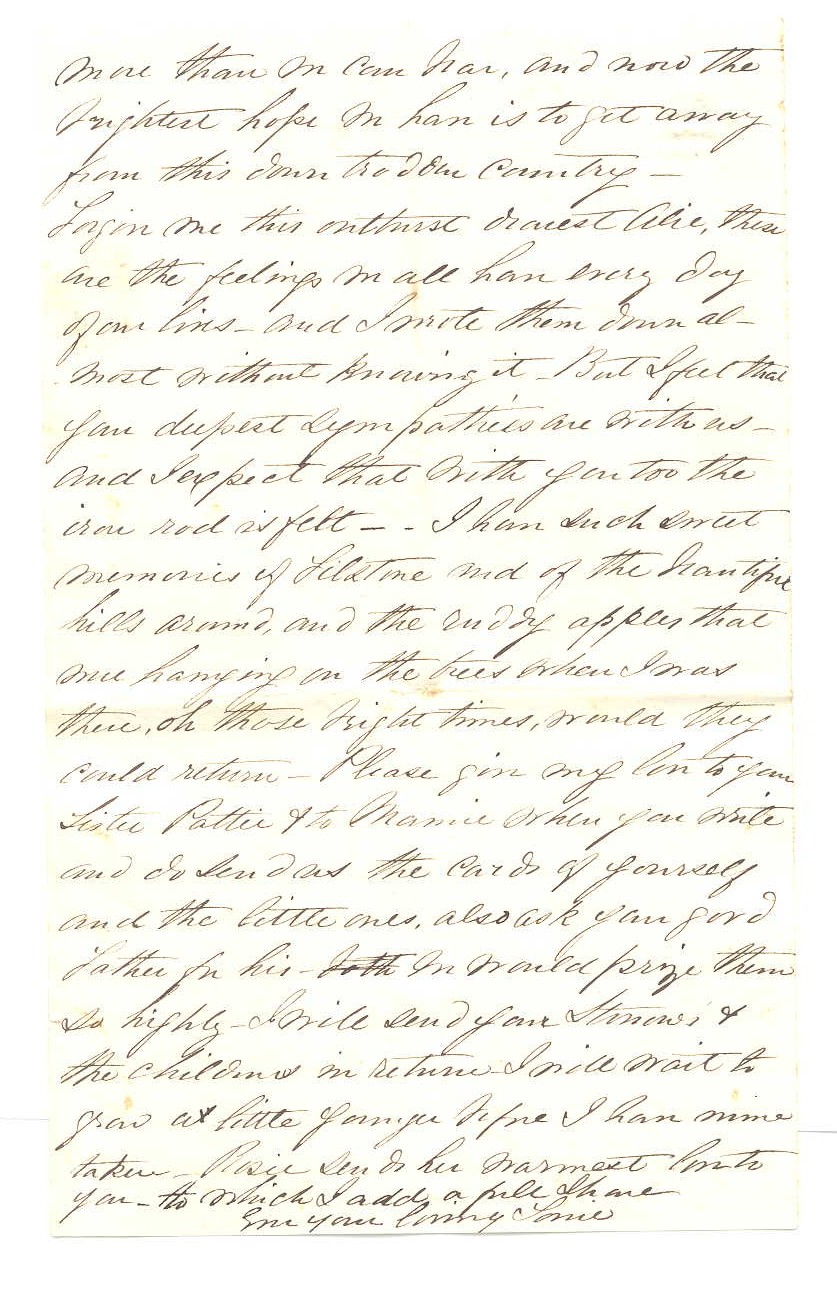 more than we can bear, and now the
brightest hope we have is to get away
from this down trodden country —
Forgive me this outburst dearest Alie, these
are the feelings we all have every day
of our lives — and I wrote them down al-
most without knowing it — But I feel that
your deepest sympathies are with us —
and I expect that with you too the
iron rod is felt — - I have such sweet
memories of and of the beautiful
hills around, and the ruddy apples that
were hanging on the trees when I was
there, oh those bright times, would they
could return — Please give my love to your
Sister Pattie & to Mamie when you write
and do send us the cards of yourself
and the little ones, also ask your good
Father for his — both we would prize them
so highly — I will send you &
the childrens in return — I will wait to
grow a little younger before I have mine
taken — Rosie sends her warmest love to
you — to which I add a full share
Ever your loving